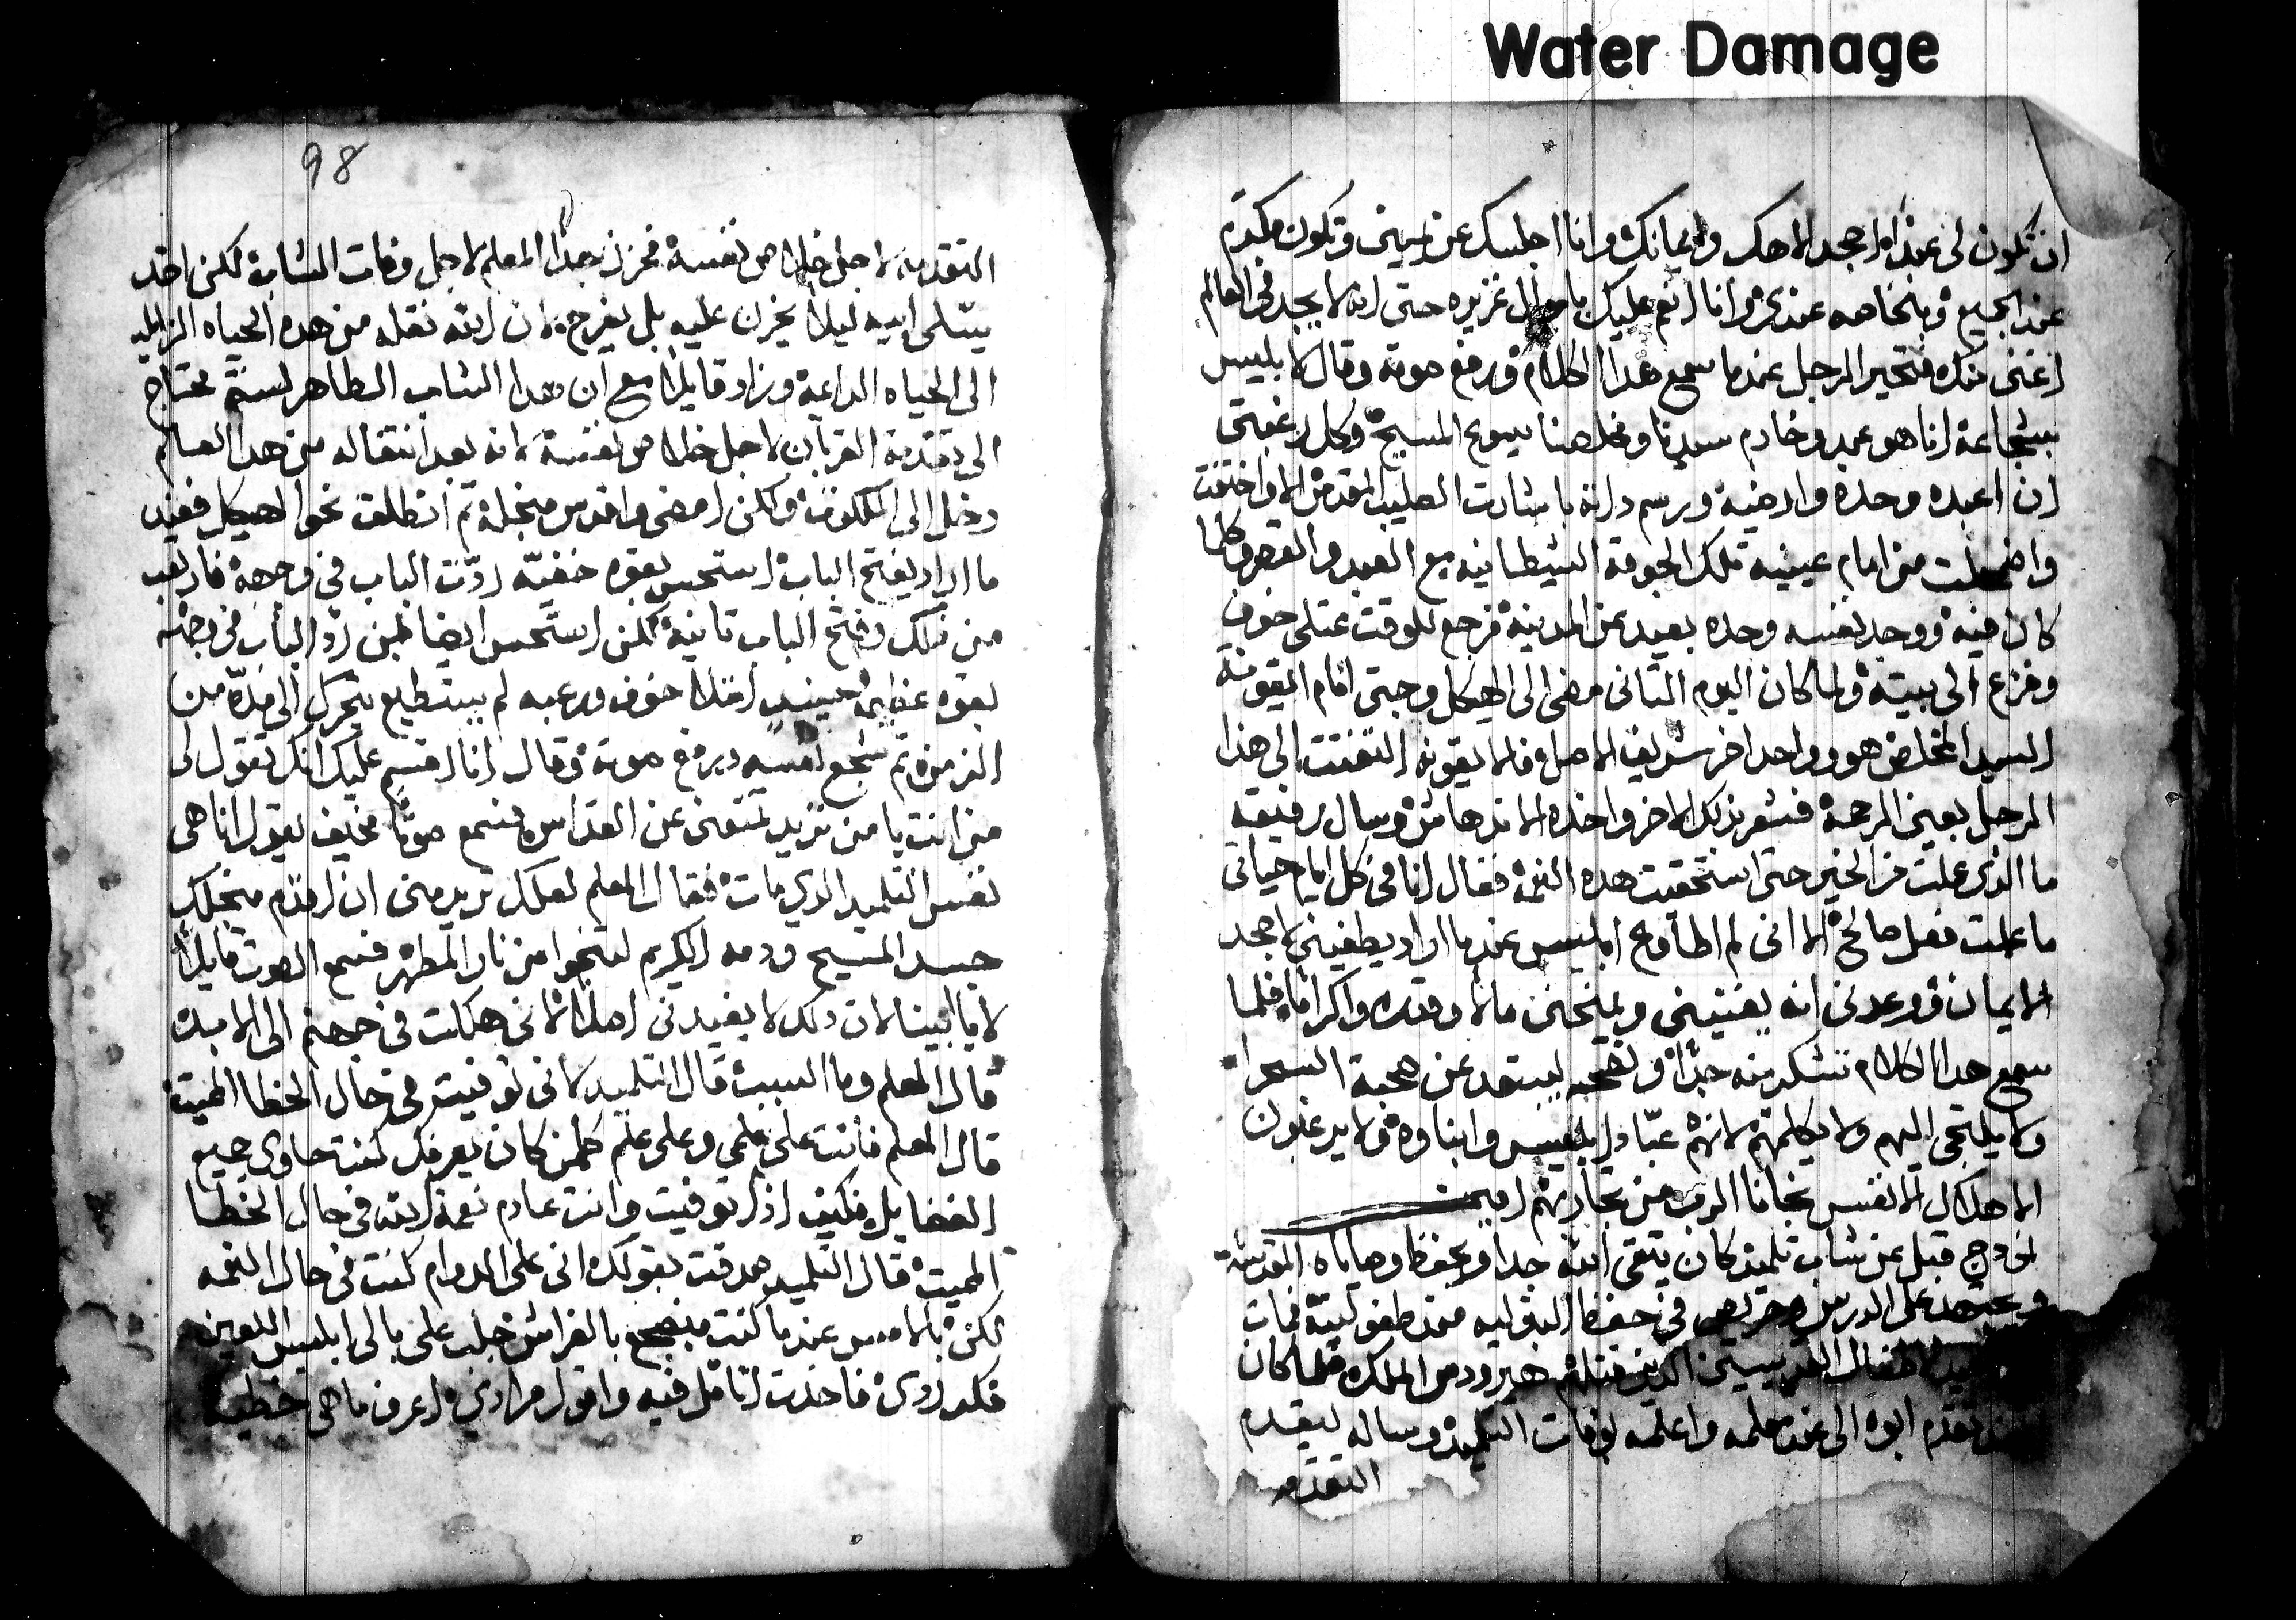 Water Damage
ان تكون لي عبدا احجد الاهك وايمانك وانا اجلسك عن يميني وتكون مكرم
عند الجميع وبخاصه عندي وانا انعم عليك باموال غزيره حتى انه لا يجد في العالم
اغنى منك فتحير الرجل عندما سمع هدا الكلام ورفع صوته وقال لابليس
بشجاعة انا هو عبد وخادم سيدنا ومخلصنا يسوع المسيح وكل رغبتي
ان اعبده وحده وارضيه ورسم داته باشارت الصليب المقدس والا واختفت
واضمحلت من امام عينيه تلك الجوقة الشيطانيه مع العبد والقصر وكلما
كان فيه ووجد نفسه وحده بعيد عن المدينة فرجع للوقت ممتلى خوف
وفزع الى بيته ولما كان اليوم التاني مضى الى الهيكل وجتى امام ايقونة
السيد المخلص هو وواحد اخر شريف الاصل فالايقونه التفتت الى هذا
الرجل بعين الرحمة فشعر بذلك الاخر واخذه الاندهاش وسال رفيقه
ما الذي عملت من الخير حتى استحقيت هده النعمة فقال انا في كل ايام حياتي
ما عملت فعل صالح الا اني لم اطاوع ابليس عندما اراد يطغيني لاجحد
الايمان ووعدني انه يغنيني ويمنحني مالا وقدره واكراما فلما
سمع هدا الكلام تشكر منه جدا ونصحه ليبتعد عن صحبة السحرا
ولا يلتجي اليهم ولا يكلمهم لانهم عباد ابليس وابناوه ولا يرغبون
الا هلاك الانفس نجانا الرب من تجاربهم امين
انودج قبل عن شاب تلميذ كان يتقي الله جدا ويحفظ وصاياه المقدسة
ومجتهد على الدرس وحريص في حفظ البتوليه منذ طفوليته فمات
الاطفال القديسين الذين قتلهم هيرودس الملك فلما كان
تقدم ابوه الى عند معلمه واعلمه بوفات التلميذ وساله ليقدم
التقدمه
98
التقدمه لاجل خلاص نفسة فحزن هدا المعلم لاجل وفات الشاب لكن اخد
يتسلى ابيه ليلا يحزن عليه بل يفرح لان الله نقله من هده الحياه الزايله
الى الحياه الداعية وزاد قايلا مع ان هدا الشاب الطاهر لستم محتاج
الى تقدمة القربان لاجل خلاص نفسة لانه بعد انتقاله من هدا العالم
دخل الى الملكوت ولكن امضي واقدس منجلة ثم انطلق نحو الهيكل فعند
ما اراد يفتح الباب استحس بقوه خفيه ردت الباب في وجهه فارتعب
من دلك وفتح الباب تانية لكن استحس ايضا لمن رد الباب في وجهه
بقوه عظيمه حينيد امتلا خوف ورعبه لم يستطيع يتحرك الى مدة من
الزمن ثم شجع نفسه ورفع صوته وقال انا اقسم عليك انك تقول لي
من انت يا من تريد تمنعني عن القداس فسمع صوتا مخيف يقول انا هي
نفس التلميد الدي مات فقال المعلم لعلك تريد مني ان اقدم منجلك
جسد المسيح ودمه الكريم لتنجوا من نار المطهر فسمع الصوت قايلا
لا يا ابينا لان دلك لا يفيدني اصلا لاني هلكت في جهنم الى الابد
قال المعلم وما السبب قال التلميد لاني توفيت في حال الخطا المميتة
قال المعلم فانت على علمي وعلى علم كلمن كان يعرفك كنت حاوي جميع
الفضايل فكيف ادا توفيت وانت عادم نعمة الله في حال الخطا
المميتة قال التلميد صدقت بقولك اني على الدوام كنت في حال النعمه
لكن بالامس عندما كنت منضجع بالفراش جلب على بالي ابليس اللعين
فكر ردي فاخدت اتامل فيه واقول مرادي اعرف ما هي خطية